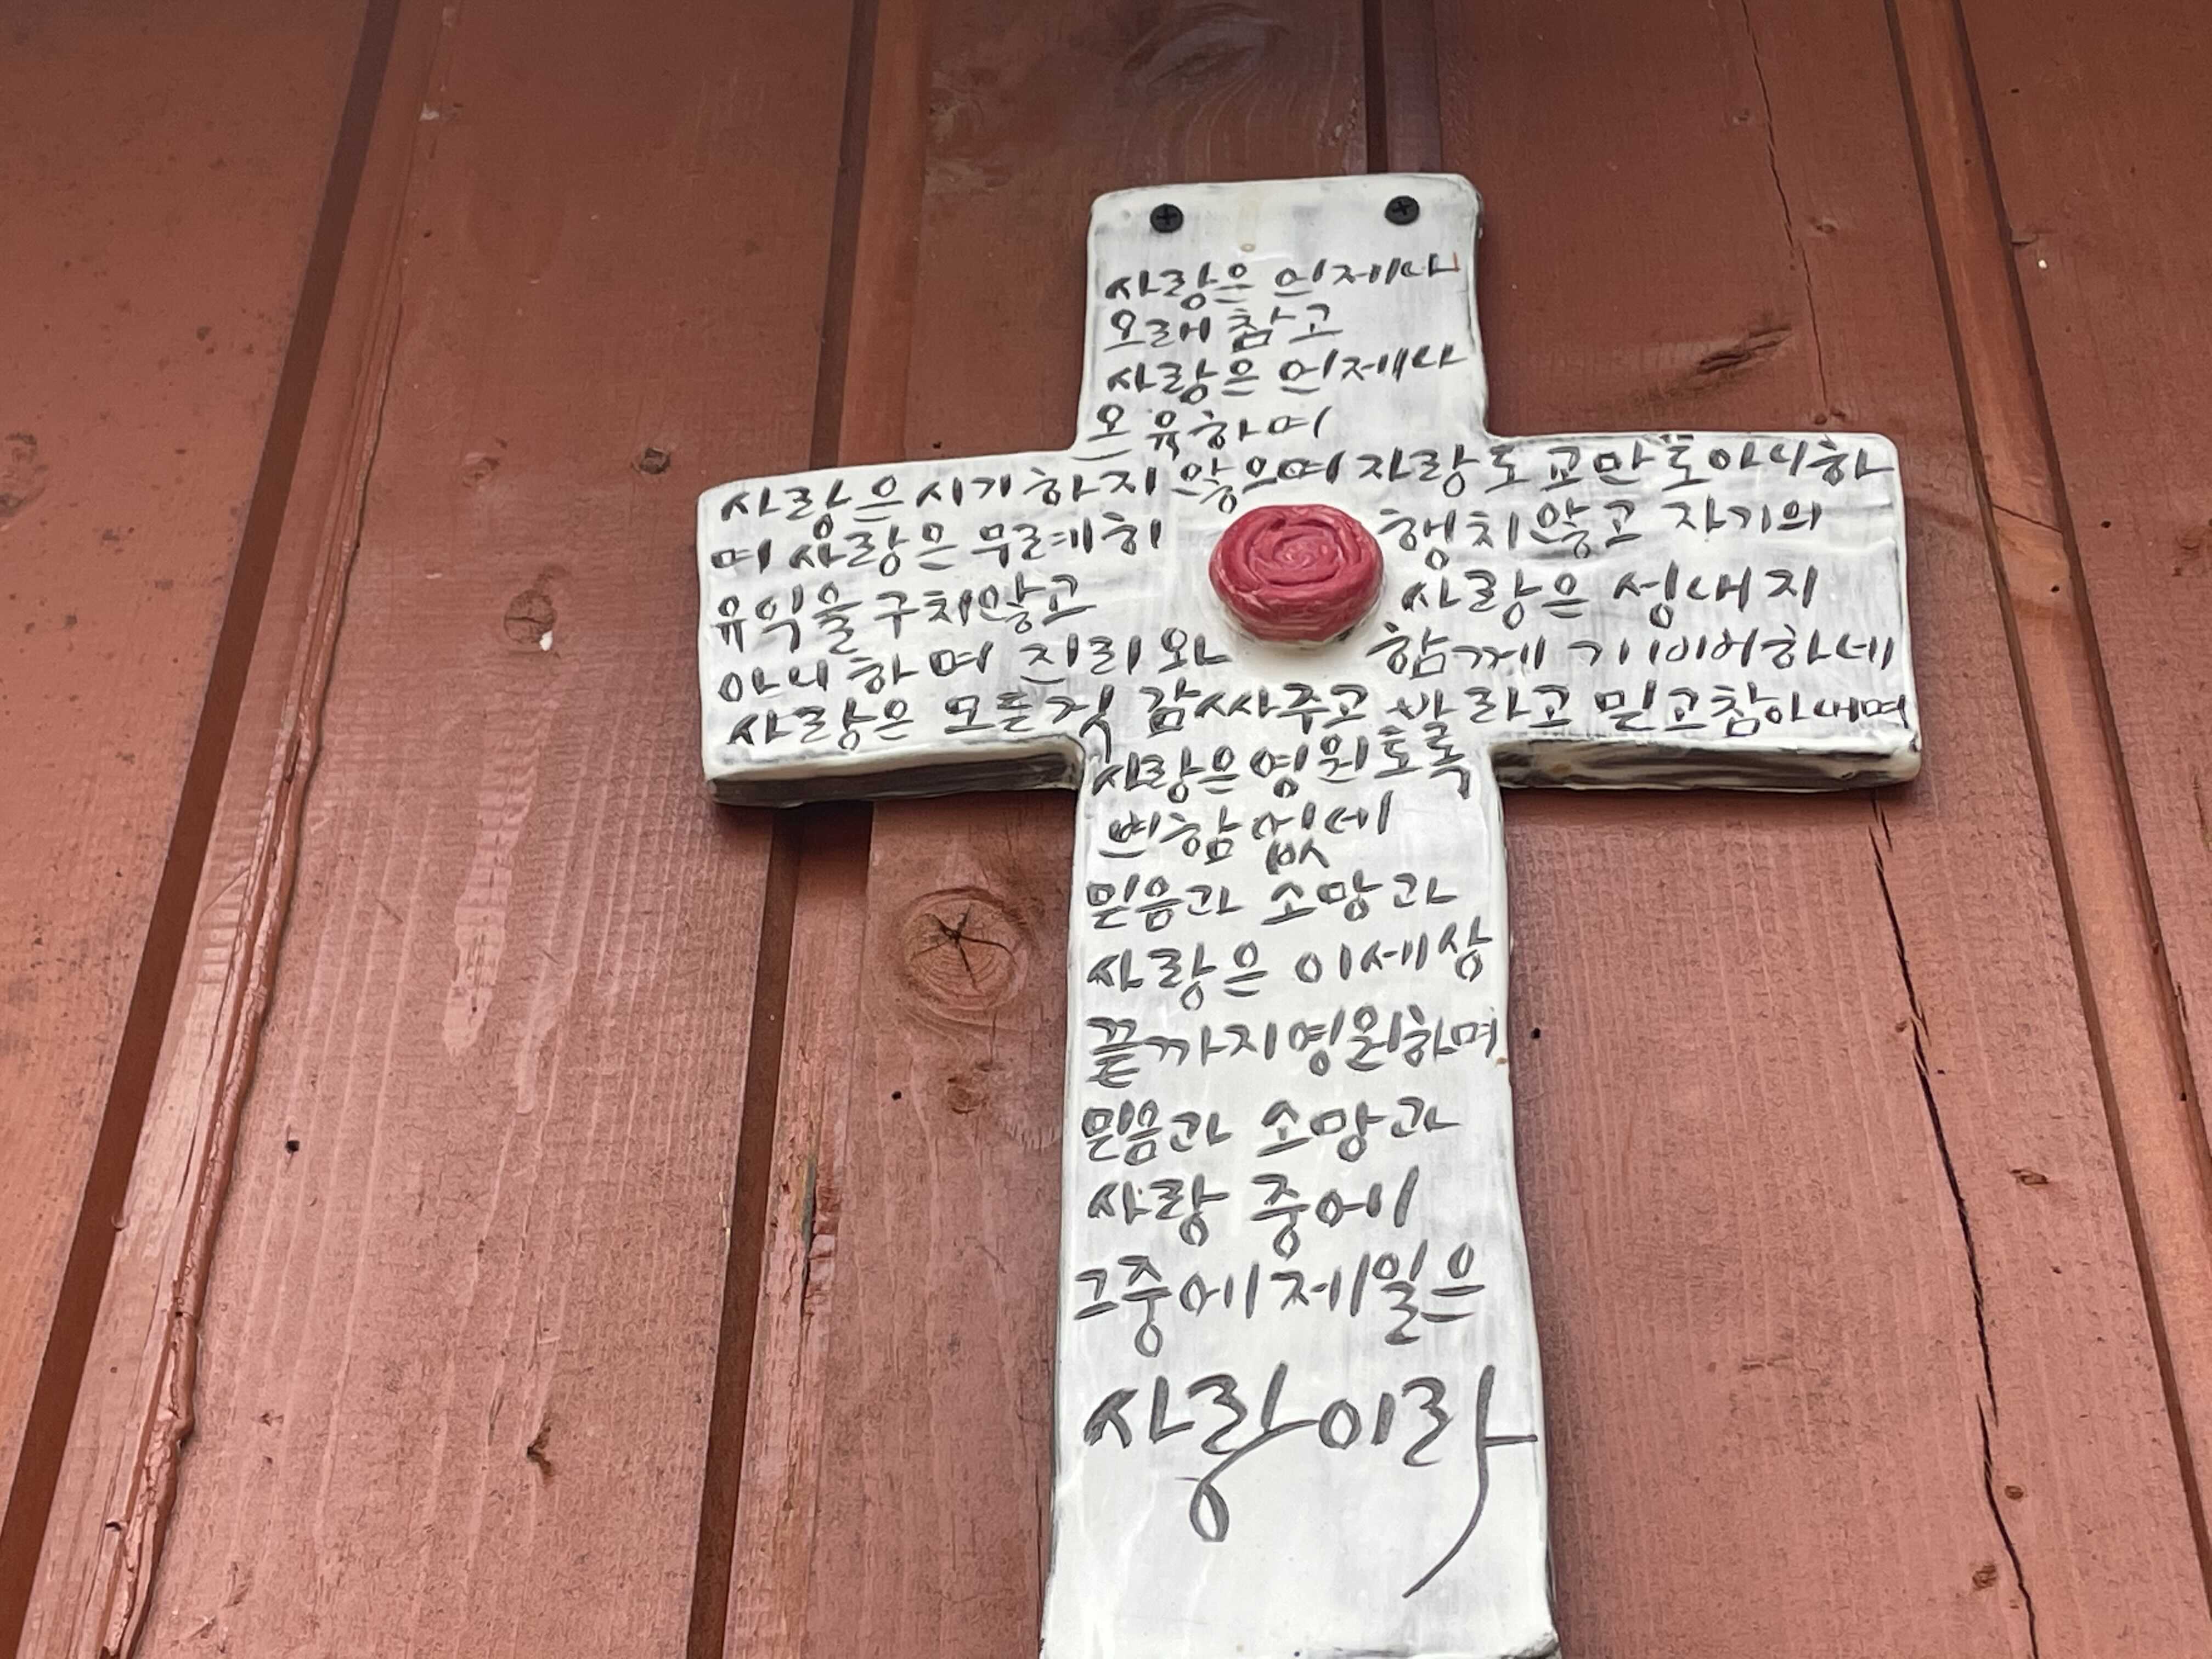 사랑은 언제나
오래 참고
사랑은 언제나
온유하며
사랑은 시기하지 않으며 자랑도 교만도 아니하
며 사랑은 무례히 행치 않고 자기의
유익을 구치 않고 사랑은 성내지
아니하며 진리와 함께 기뻐하네
사랑은 모든것 감싸주고 바라고 믿고 참아내며
사랑은 영원토록
변함 없네
믿음과 소망과
사랑은 이세상
끝까지 영원하며
믿음과 소망과
사랑 중에
그중에 제일은
사랑이라